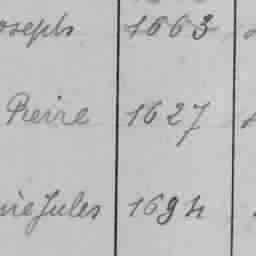 Joseph 1663
Pierre 1627
Jules 1694